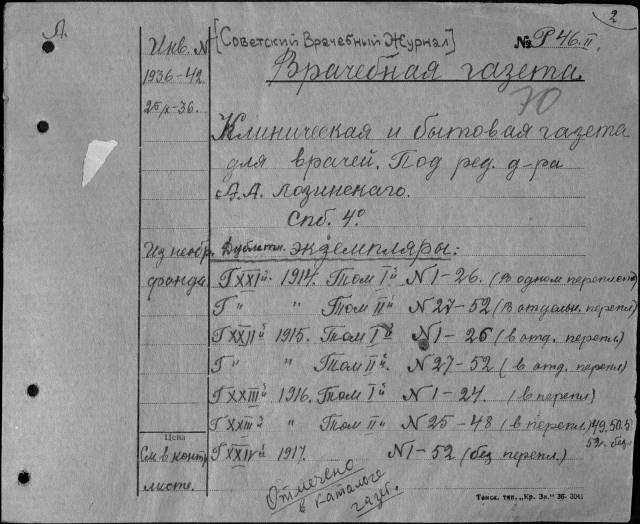 2
Л.
Инв. №
1936-42
25/X-36.
[Советский Врачебный Журнал]
№ Р 46.II.
Врачебная газета.
70
Клиническая и бытовая газета
для врачей. Под ред. д-ра
А.А. Лозинскаго.
Спб. 4º
Из необр. фонда
Дублетн. экземпляры:
Г XXIй. 1914. Том Iй № 1-26. (в одном переплете)
Г " " Том IIй № 27-52 (в отдельн. перепл)
Г XXIIй 1915. Том Iй № 1-26 (в отд. перепл)
Г " " Том IIй. № 27-52 (в отд. перепл)
Г XXIIIй 1916. Том Iй № 1-24. (в перепл)
Г XXIIIй " Том IIй № 25-48 (в перепл) 49, 50, 51
52. без
Цена
См. в контр. листе.
Г XXIVй 1917. № 1-52 (без перепл.)
Отмечено
в каталоге
газет.
Томск. тип. „Кр. Зн.“ 36- 3041